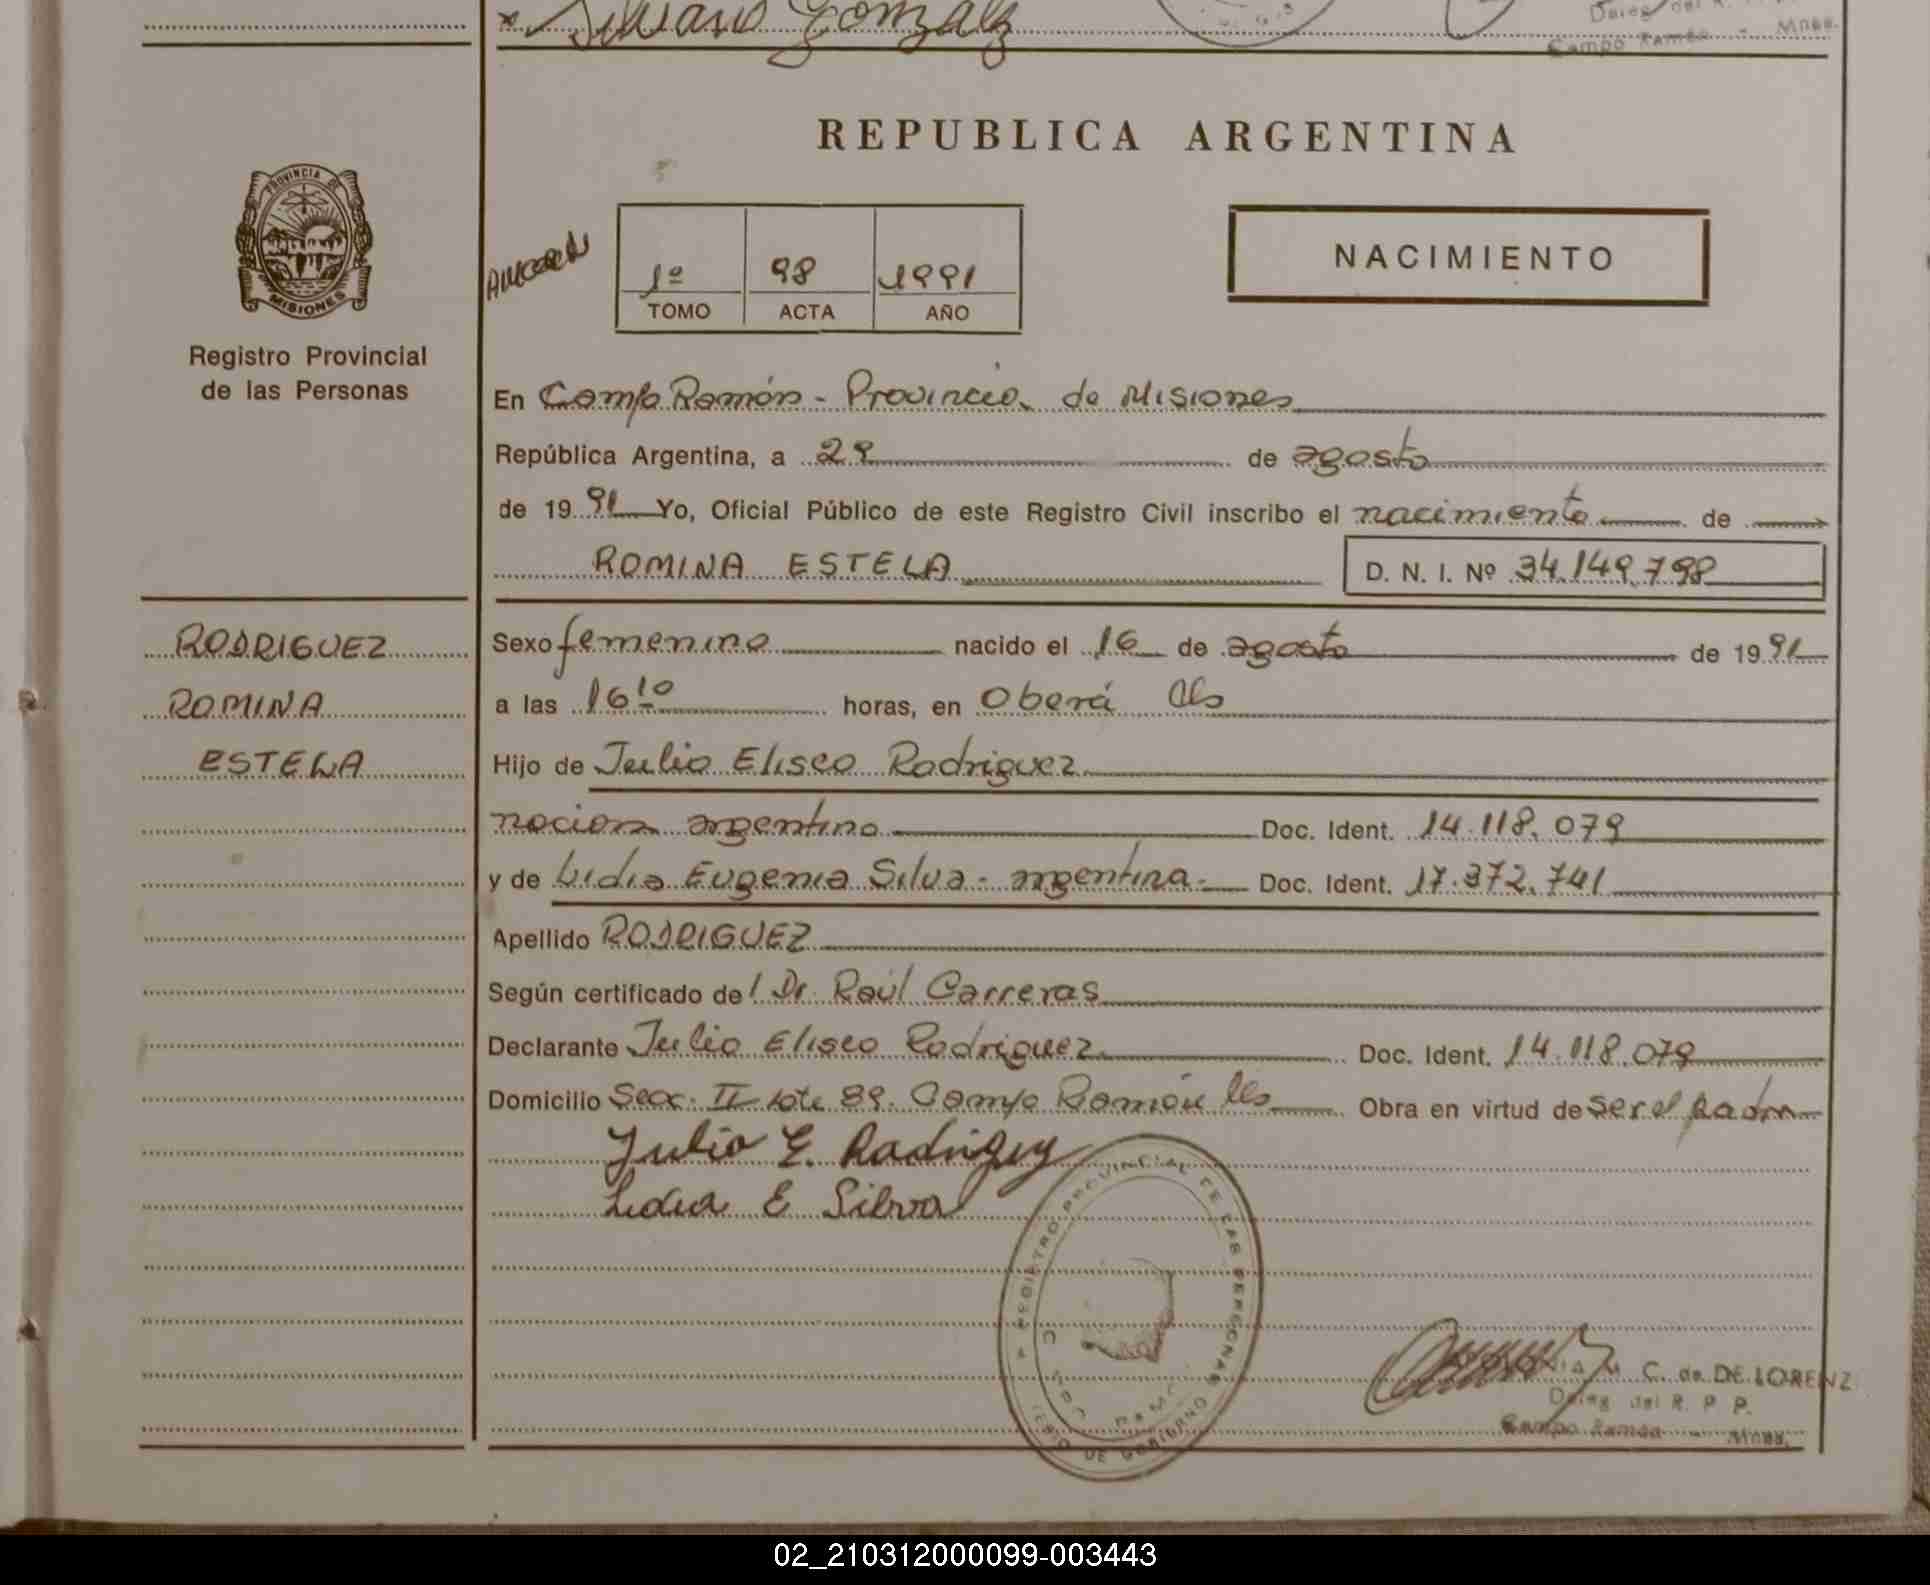 Silvano Gonzalez
Campo Ramón - Mnes.
REPUBLICA ARGENTINA
PROVINCIA DE
MISIONES
1º 98 1991
TOMO ACTA AÑO
NACIMIENTO
Registro Provincial
de las Personas
En Campo Ramón - Provincia de Misiones
República Argentina, a 29 de agosto
de 1991 Yo, Oficial Público de este Registro Civil inscribo el nacimiento de
ROMINA ESTELA D. N. I. Nº 34.149.798
RODRIGUEZ
ROMINA
ESTELA
Sexo femenino nacido el 16 de agosto de 1991
a las 16 10 horas, en Oberá
Hijo de Julio Eliseo Rodriguez
nacion argentino Doc. Ident. 14.118.079
y de Lidia Eugenia Silva - argentina - Doc. Ident. 17.372.741
Apellido RODRIGUEZ
Según certificado de Dr. Raúl Carreras
Declarante Julio Eliseo Rodriguez Doc. Ident. 14.118.079
Domicilio Secc. II lote 89. Campo Ramón Obra en virtud de ser el padre
Julio E. Rodriguez
Lidia E Silva
REGISTRO PROVINCIAL DE LAS PERSONAS
DE GOBIERNO
C. de DE LORENZ
Deleg del R. P P.
Campo Ramón - Mnes.
02_210312000099-003443